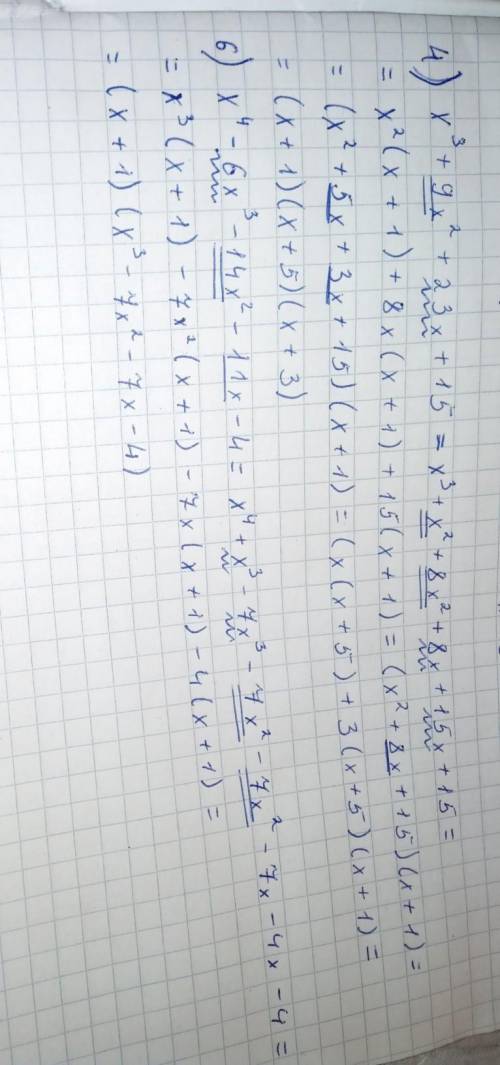 4) x³ + 9x² + 23x + 15 = x³ + x² + 8x² + 8x + 15x + 15 =
= x²(x + 1) + 8x(x + 1) + 15(x + 1) = (x² + 8x + 15)(x + 1) =
= (x² + 5x + 3x + 15)(x + 1) = (x(x + 5) + 3(x + 5)(x + 1) =
= (x + 1)(x + 5)(x + 3)
6) x⁴ - 6x³ - 14x² - 11x - 4 = x⁴ + x³ - 7x³ - 7x² - 7x² - 7x - 4x - 4 =
= x³(x + 1) - 7x²(x + 1) - 7x(x + 1) - 4(x + 1) =
= (x + 1)(x³ - 7x² - 7x - 4)